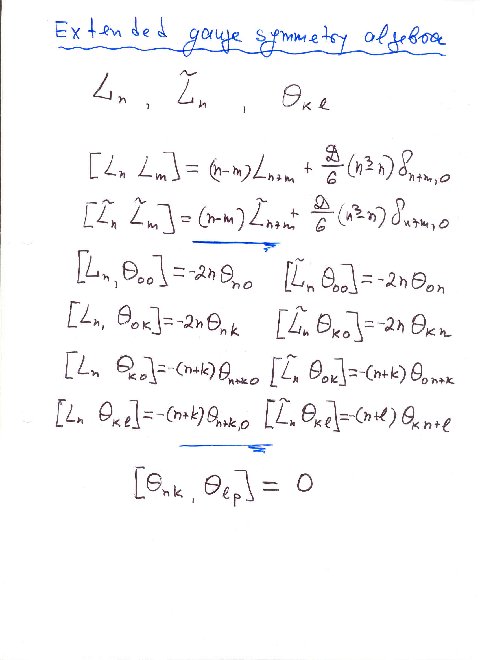 Extended gauge symmetry algebra
Lₙ , L̃ₙ , Θₖₗ
[Lₙ Lₘ] = (n-m)Lₙ₊ₘ + D/6 (n³-n) δₙ₊ₘ,₀
[L̃ₙ L̃ₘ] = (n-m) L̃ₙ₊ₘ + D/6 (n³-n) δₙ₊ₘ,₀
[Lₙ, Θ₀₀] = -2n Θₙ₀ [L̃ₙ Θ₀₀] = -2n Θ₀ₙ
[Lₙ, Θ₀ₖ] = -2n Θₙₖ [L̃ₙ Θₖ₀] = -2n Θₖₙ
[Lₙ Θₖ₀] = -(n+k) Θₙ₊ₖ₀ [L̃ₙ Θ₀ₖ] = -(n+k) Θ₀ₙ₊ₖ
[Lₙ Θₖₗ] = -(n+k) Θₙ₊ₖ,₀ [L̃ₙ Θₖₗ] = -(n+l) Θₖₙ₊ₗ
[Θₙₖ, Θₗₚ] = 0